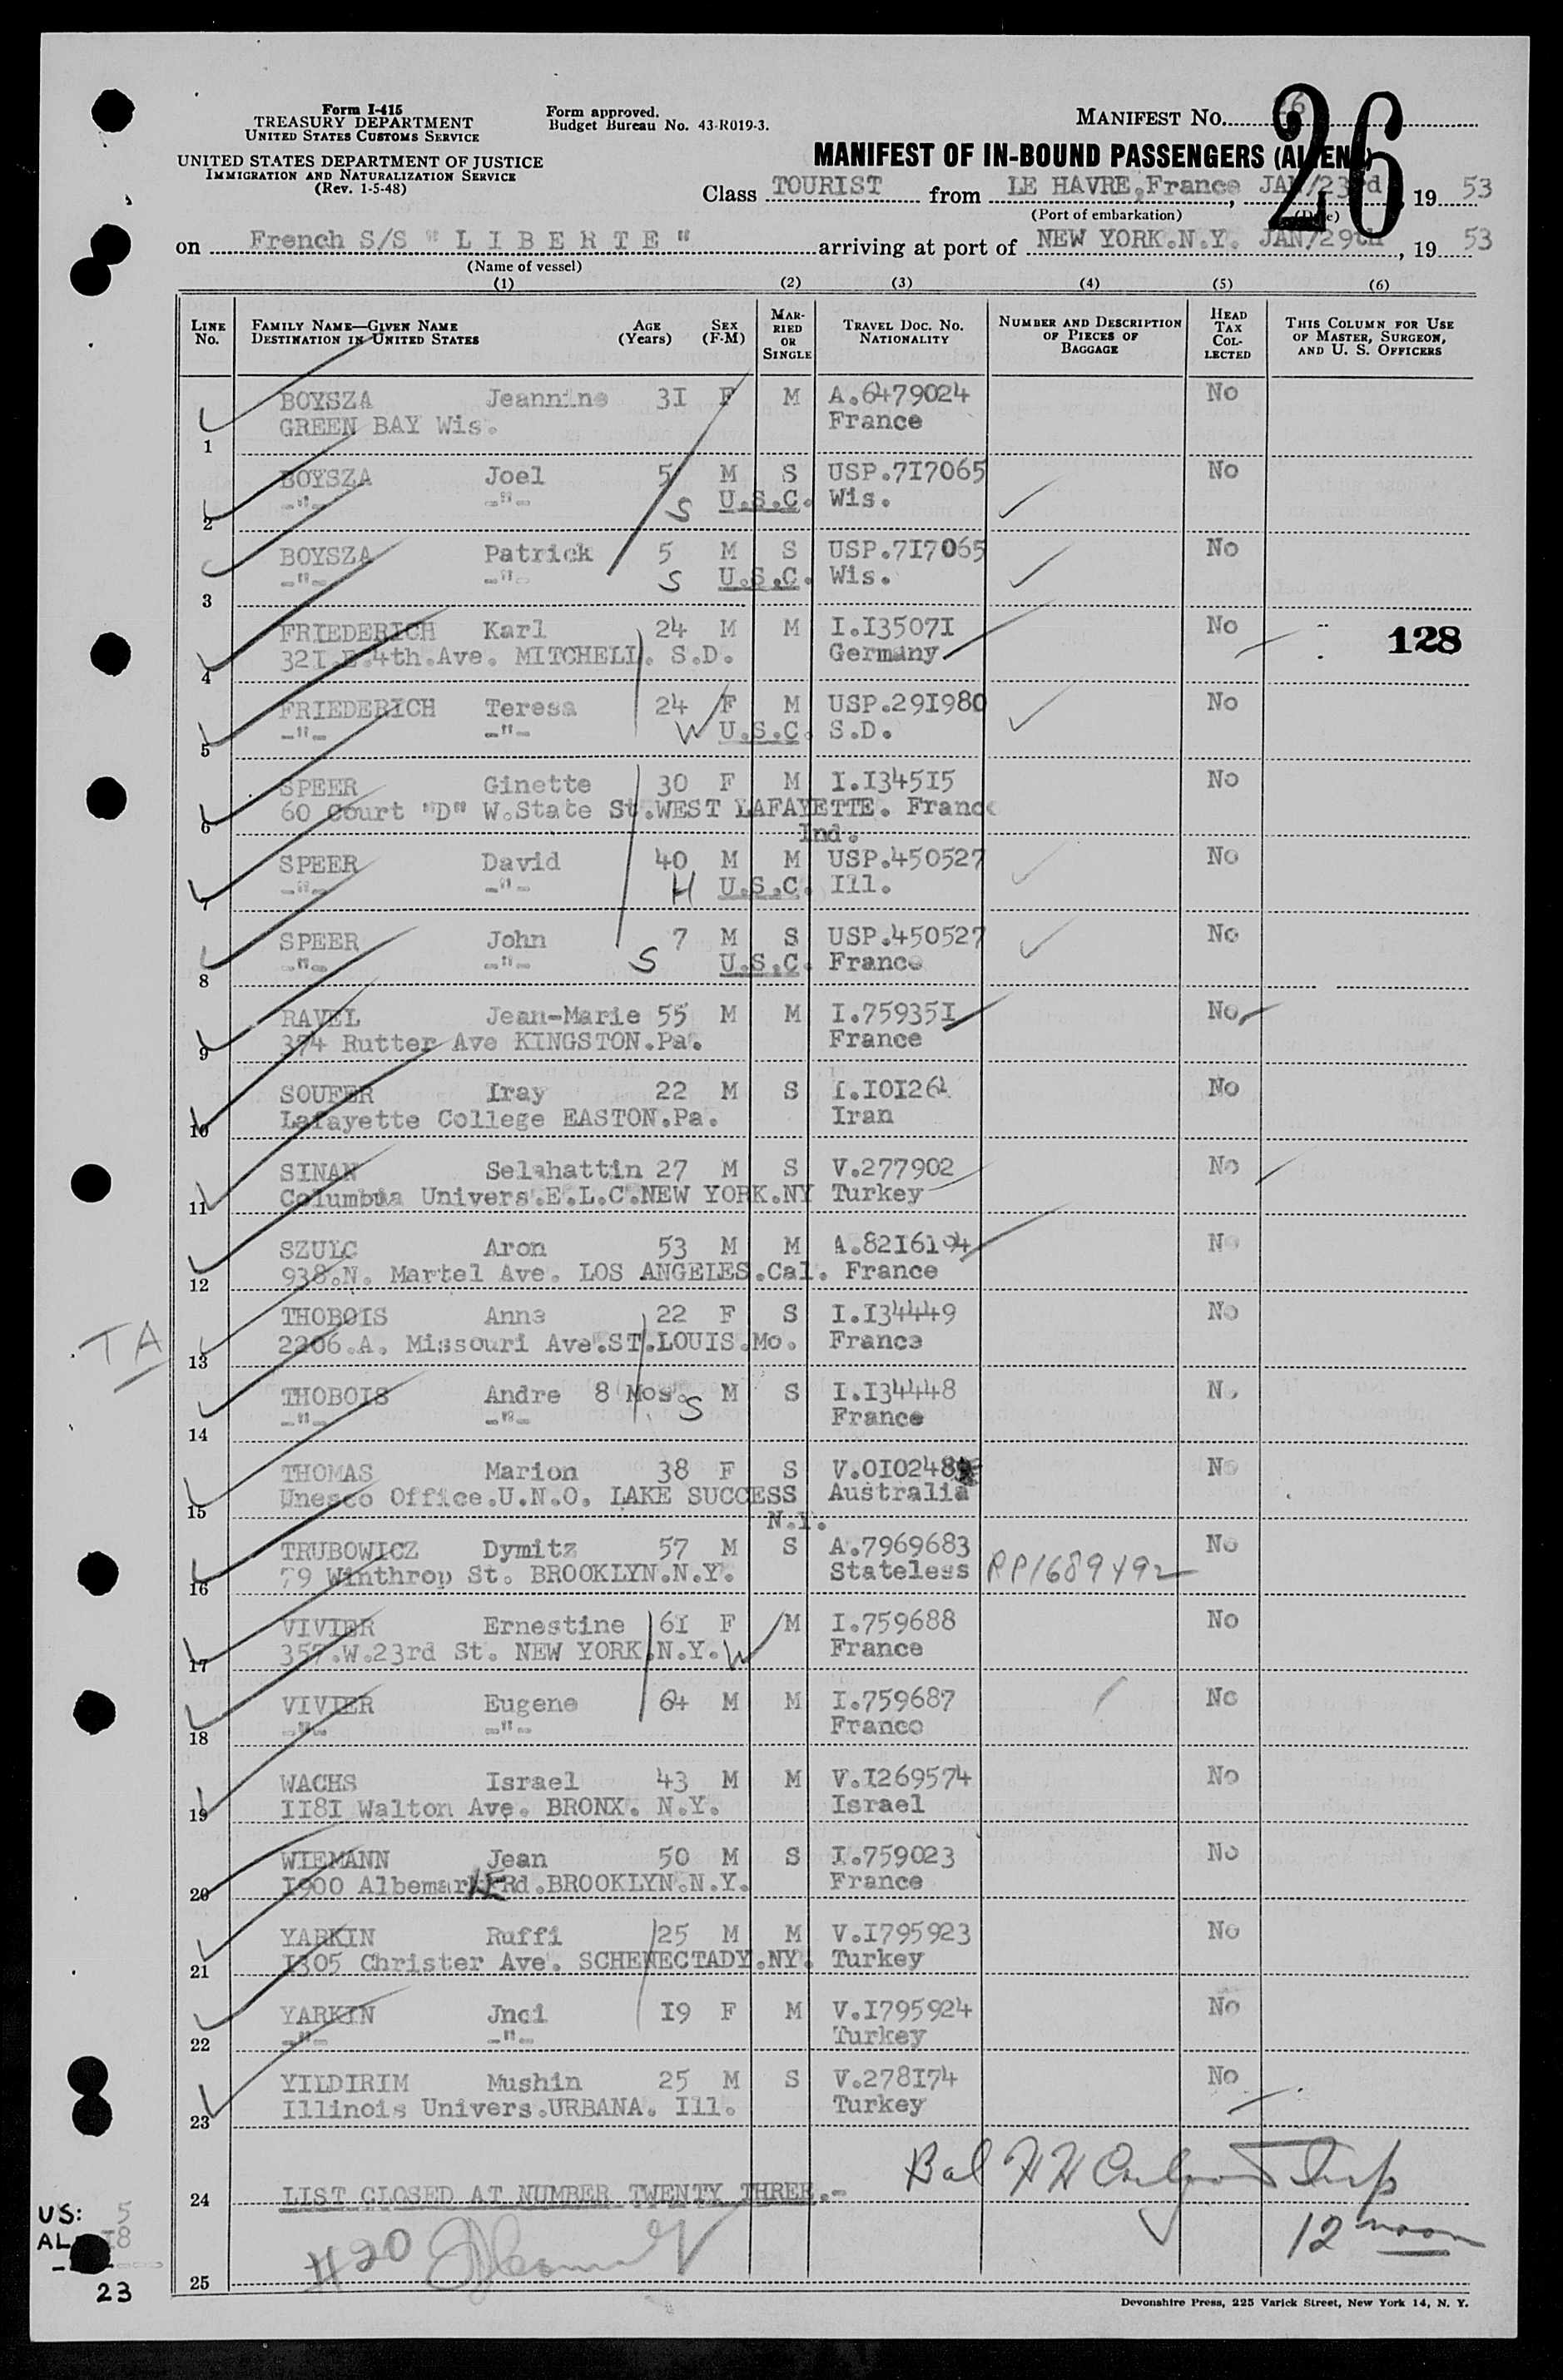 Form I-415
TREASURY DEPARTMENT
UNITED STATES CUSTOMS SERVICE
UNITED STATES DEPARTMENT OF JUSTICE
IMMIGRATION AND NATURALIZATION SERVICE
(Rev. 1-5-48)
Form approved.
Budget Bureau No. 43-R019-3.
MANIFEST No. 26
26
MANIFEST OF IN-BOUND PASSENGERS (ALIENS)
Class TOURIST from LE HAVRE,France, JAN/23rd, 19 53
(Port of embarkation) (Date)
on French S/S "L I B E R T E" arriving at port of NEW YORK.N.Y. JAN/29th, 19 53
(Name of vessel)
(1) (2) (3) (4) (5) (6)
LINE No. FAMILY NAME—GIVEN NAME DESTINATION IN UNITED STATES AGE (Years) SEX (F-M) MARRIED OR SINGLE TRAVEL DOC. No. NATIONALITY NUMBER AND DESCRIPTION OF PIECES OF BAGGAGE HEAD TAX COLLECTED THIS COLUMN FOR USE OF MASTER, SURGEON, AND U. S. OFFICERS
BOYSZA Jeannine 3I F M A.6479024 No
1 GREEN BAY Wis. France
BOYSZA Joel 5 M S USP.7I7065 No
2 -"- -"- S U.S.C. Wis.
BOYSZA Patrick 5 M S USP.7I7065 No
3 -"- -"- S U.S.C. Wis.
FRIEDERICH Karl 24 M M I.I3507I No 128
4 32I.E.4th.Ave. MITCHELL. S.D. Germany
FRIEDERICH Teresa 24 F M USP.29I980 No
5 -"- -"- W U.S.C. S.D.
SPEER Ginette 30 F M I.I345I5 No
6 60 Court "D" W.State St.WEST LAFAYETTE. France
Ind.
SPEER David 40 M M USP.450527 No
7 -"- -"- H U.S.C. Ill.
SPEER John 7 M S USP.450527 No
8 -"- -"- S U.S.C. France
RAVEL Jean-Marie 55 M M I.75935I No
9 374 Rutter Ave KINGSTON.Pa. France
SOUFER Iray 22 M S I.IOI26 No
10 Lafayette College EASTON.Pa. Iran
SINAN Selahattin 27 M S V.277902 No
11 Columbia Univers.E.L.C.NEW YORK.NY Turkey
SZULC Aron 53 M M A.82I6I94 No
12 938.N. Martel Ave. LOS ANGELES.Cal. France
THOBOIS Anne 22 F S I.I34449 No
TA
13 2206.A. Missouri Ave.ST.LOUIS.Mo. France
THOBOIS Andre 8 Mos. M S I.I34448 No
14 -"- -"- S France
THOMAS Marion 38 F S V.OIO248 No
15 Unesco Office.U.N.O. LAKE SUCCESS Australia
N.Y.
TRUBOWICZ Dymitz 57 M S A.7969683 No
16 79 Winthrop St. BROOKLYN.N.Y. Stateless RP1689492
VIVIER Ernestine 6I F M I.759688 No
17 357.W.23rd St. NEW YORK.N.Y. W France
VIVIER Eugene 64 M M I.759687 No
18 -"- -"- France
WACHS Israel 43 M M V.I269574 No
19 II8I Walton Ave. BRONX. N.Y. Israel
WIEMANN Jean 50 M S I.759023 No
20 I900 AlbemarLE Rd.BROOKLYN.N.Y. France
YARKIN Ruffi 25 M M V.I795923 No
21 I305 Christer Ave. SCHENECTADY.NY. Turkey
YARKIN Jnci I9 F M V.I795924 No
22 -"- -"- Turkey
YILDIRIM Mushin 25 M S V.278I74 No
23 Illinois Univers.URBANA. Ill. Turkey
24 LIST CLOSED AT NUMBER TWENTY THREE.-
12 noon
US: 5
AL 18
23
#20
25
Devonshire Press, 225 Varick Street, New York 14, N. Y.